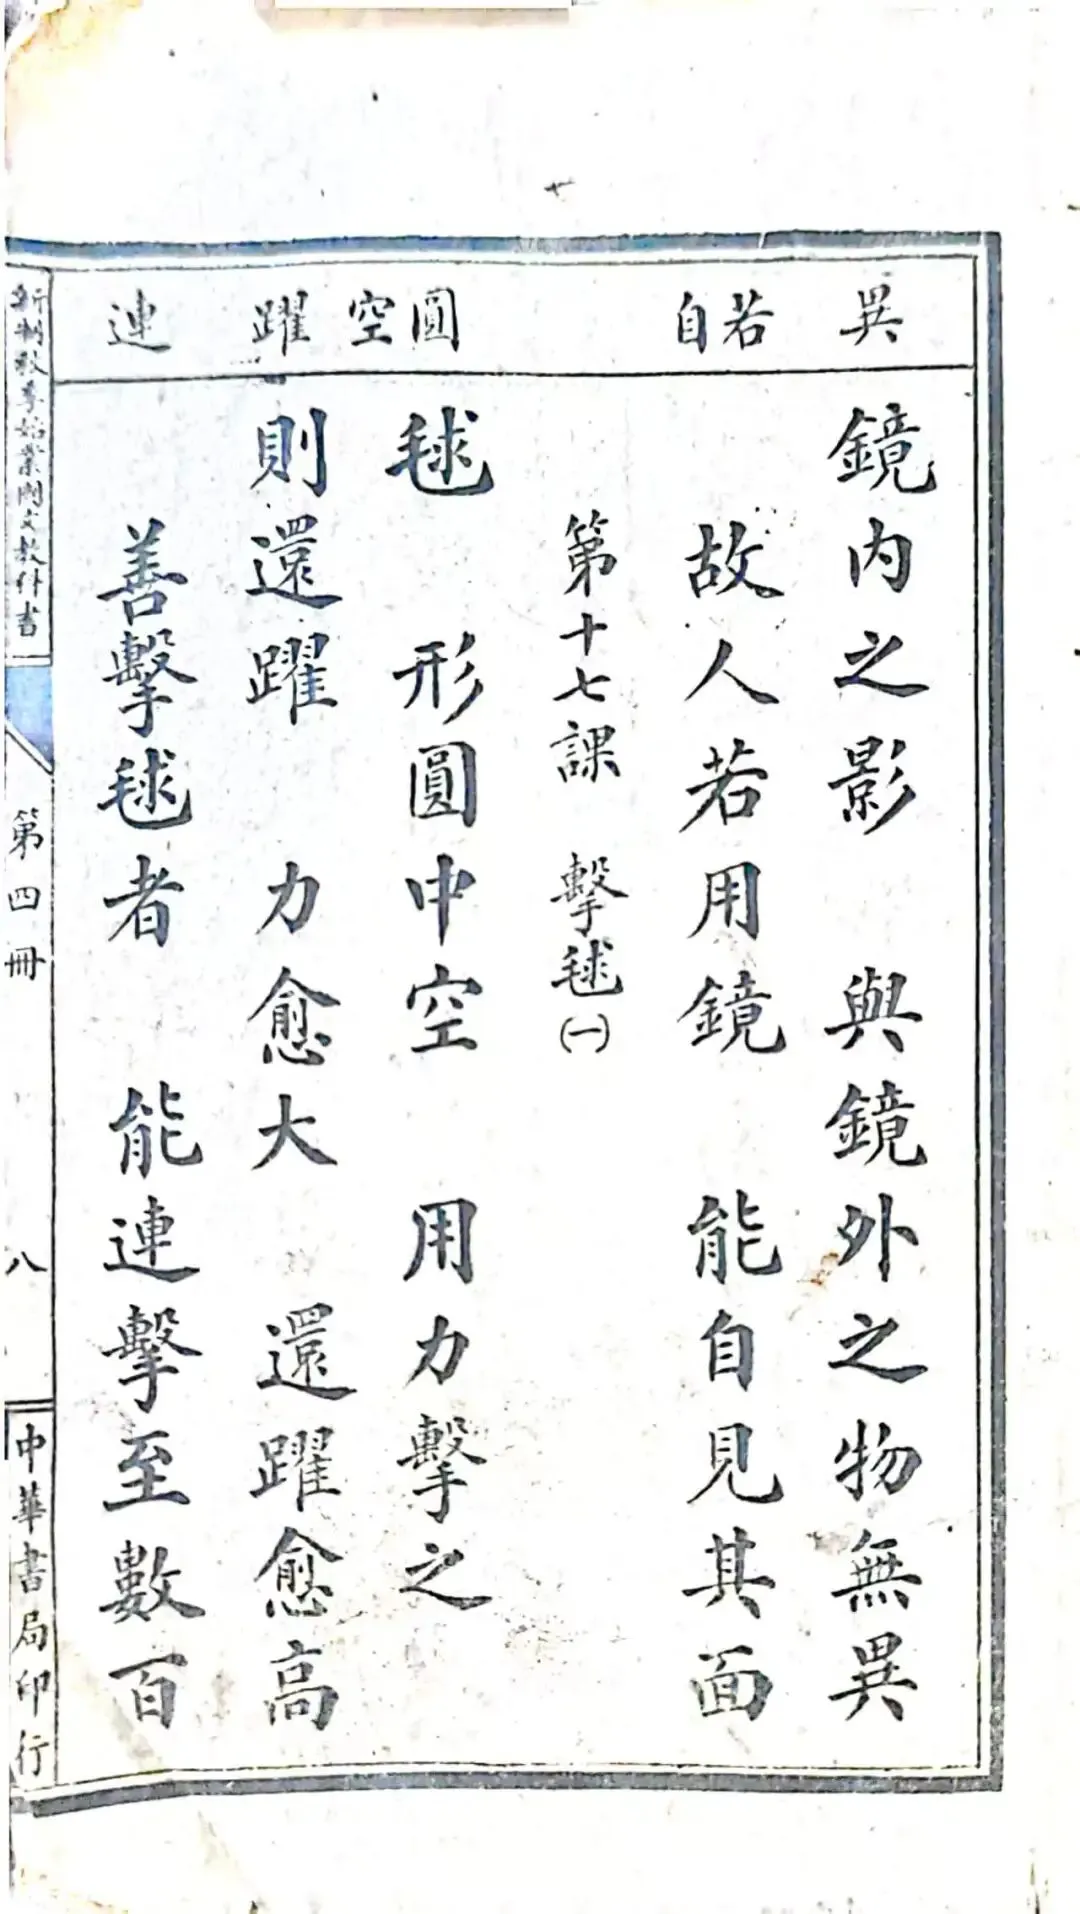 異
若
自
圓
空
躍
連
鏡内之影　與鏡外之物無異
故人若用鏡　能自見其面
第十七課　擊毬(一)
毬　形圓中空　用力擊之
則還躍　力愈大　還躍愈高
善擊毬者　能連擊至數百
新制秋季始業國文教科書
第四冊
八
中華書局印行